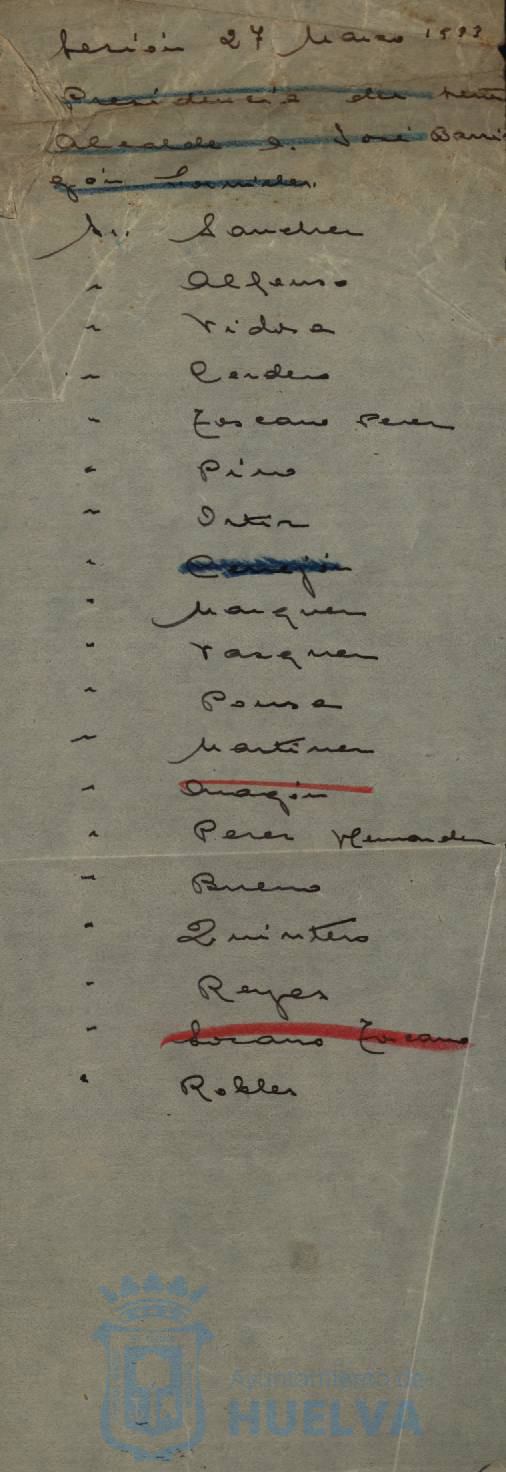 Sesión 27 Marzo 1933
Presidencia del
Alcalde D. José Barri-
gón
Sr. Sanchez
" Alfonso
" Vidosa
" Cordero
" Toscano Perez
" Pino
" Ortiz
" Cerrejón
" Marquez
" Vazquez
" Pousa
" Martinez
" Aragón
" Perez Hernandez
" Bueno
" Quintero
" Reyes
" Lozano Toscano
" Robles
Ayuntamiento de
HUELVA